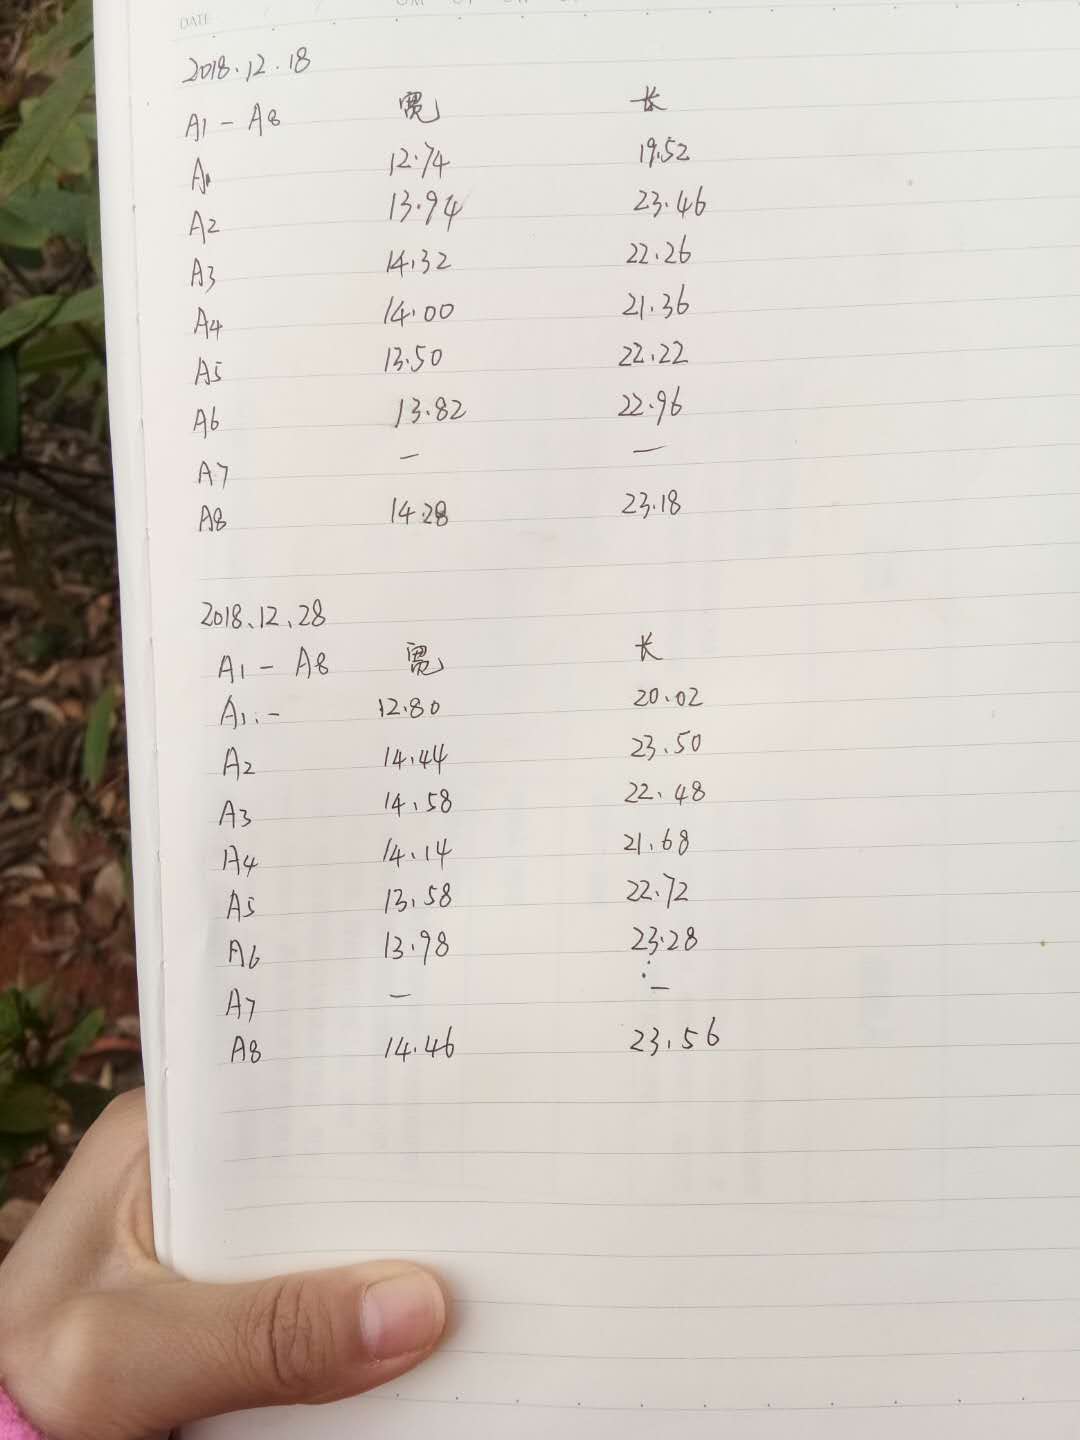 DATE
2018.12.18
A1 - A8 宽 长
A1 12.74 19.52
A2 13.94 23.46
A3 14.32 22.26
A4 14.00 21.36
A5 13.50 22.22
A6 13.82 22.96
A7 — —
A8 14.28 23.18
2018.12.28
A1 - A8 宽 长
A1.- 12.80 20.02
A2 14.44 23.50
A3 14.58 22.48
A4 14.14 21.68
A5 13.58 22.72
A6 13.98 23.28
A7 — —
A8 14.46 23.56